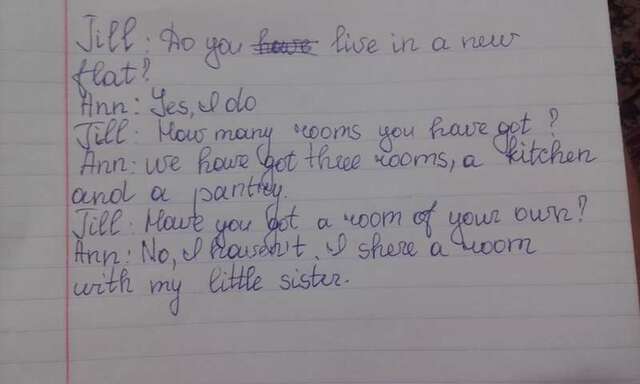 Jill: Do you live in a new
flat?
Ann: Yes, I do
Jill: How many rooms you have got?
Ann: we have got three rooms, a kitchen
and a pantry.
Jill: Have you got a room of your own?
Ann: No, I haven't. I shere a room
with my little sister.